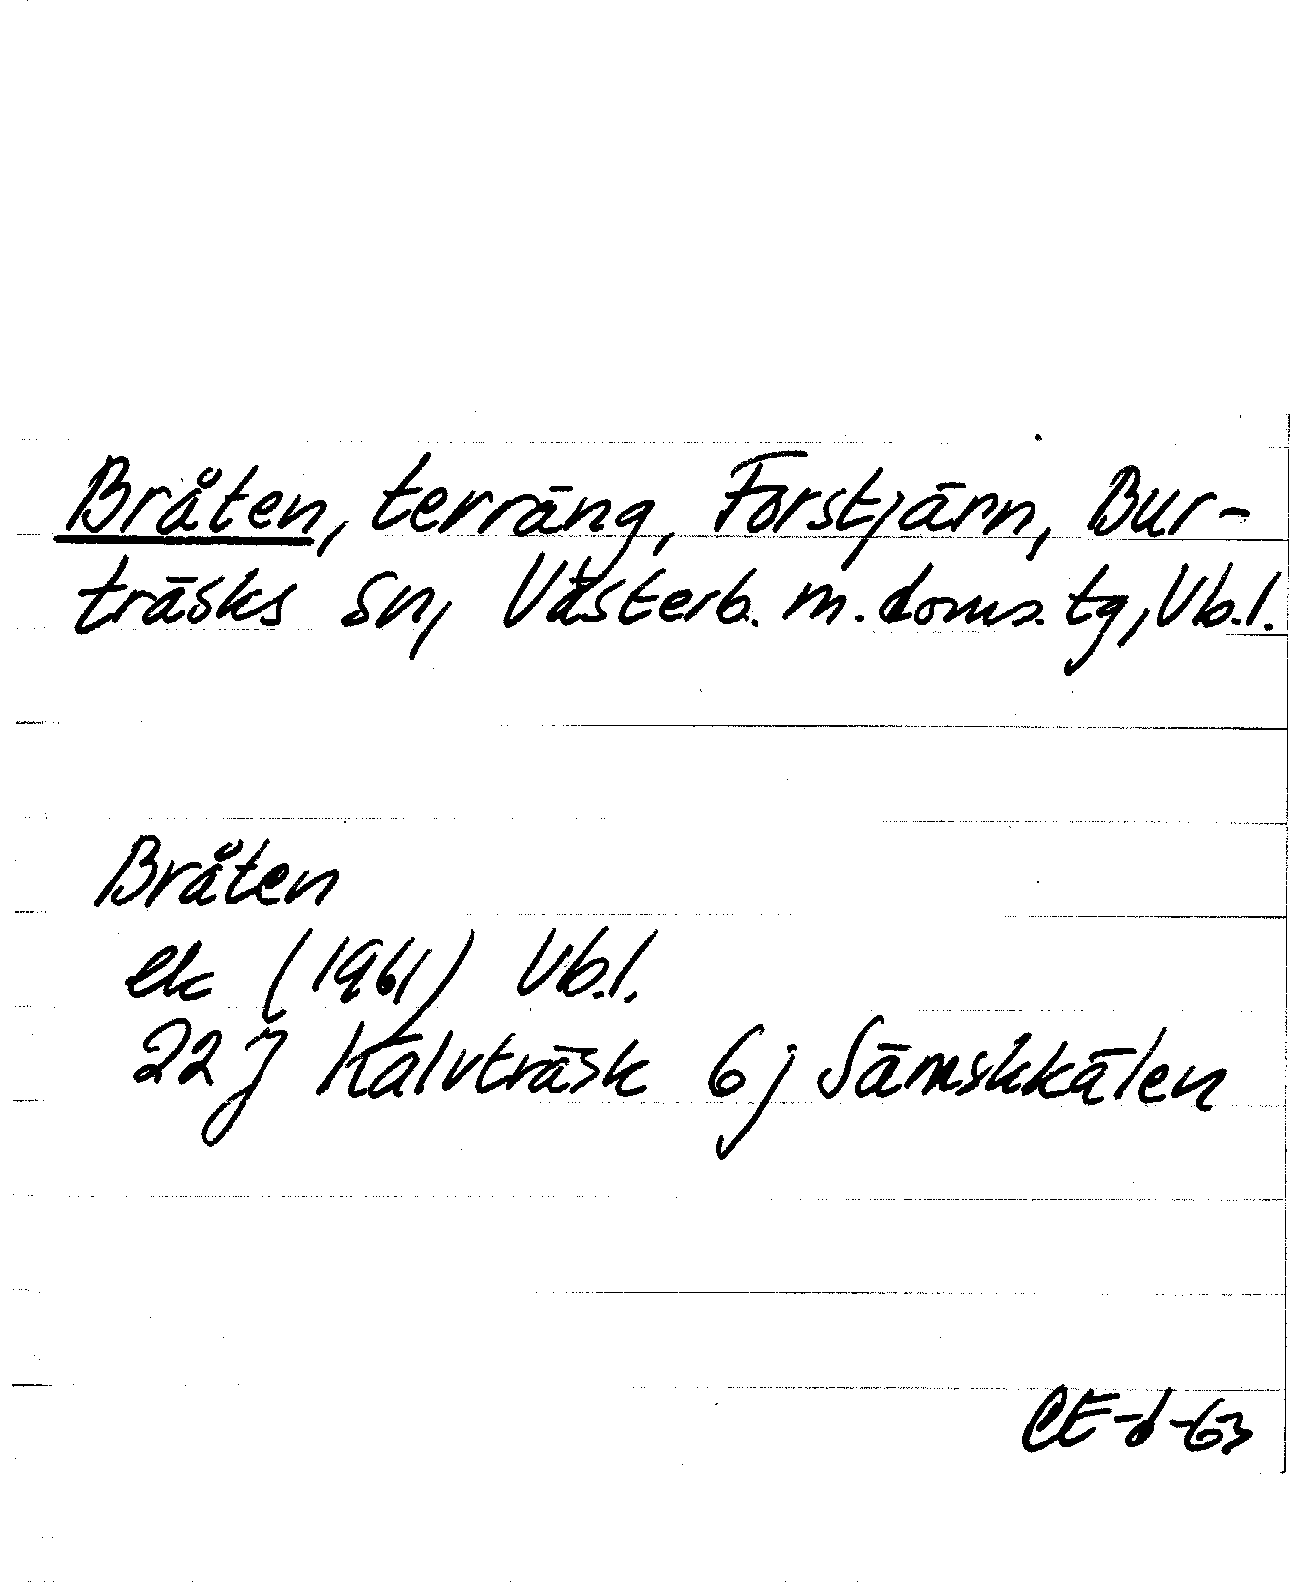 Bråten, terräng, Forstjärn, Bur-
träsks sn, Västerb. m. doms. tg, Vb.l.
Bråten
ek (1961) Vb.l.
22 J Kalvträsk 6 j Sämskkålen
CE-d-63